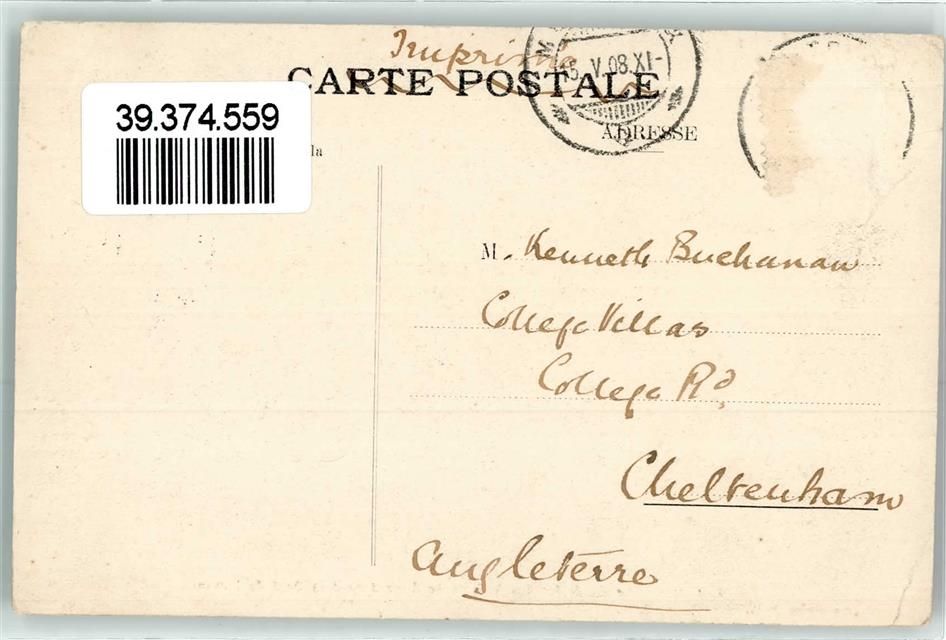 Imprimé
CARTE POSTALE
V.08.XI-
39.374.559
ADRESSE
la
M. Kenneth Buchanan
College Villas
College Rd.
Cheltenham
Angleterre